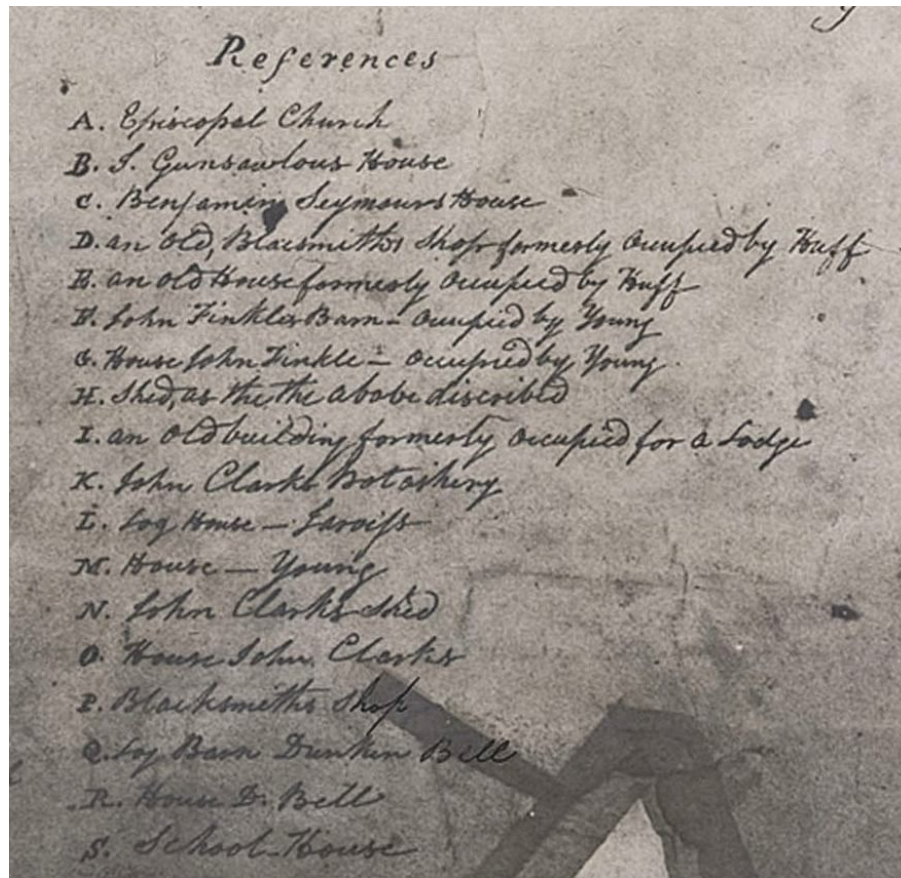 References
A. Episcopal Church
B. J. Gunsawlous House
C. Benjamin Seymours House
D. an old, Blacsmiths Shop formerly occupied by Huff
E. an old House formerly occupied by Huff
F. John Finkles Barn - occupied by Young
G. House John Finkle - occupied by Young
H. Shed, as the the above discribed
I. an old building formerly occupied for a Lodge
K. John Clarks Potashery
L. Log House -
M. House - Young
N. John Clarks Shed
O. House John Clarks
P. Blacksmiths Shop
Q. Log Barn Dunkin Bell
R. House D. Bell
S. School-House